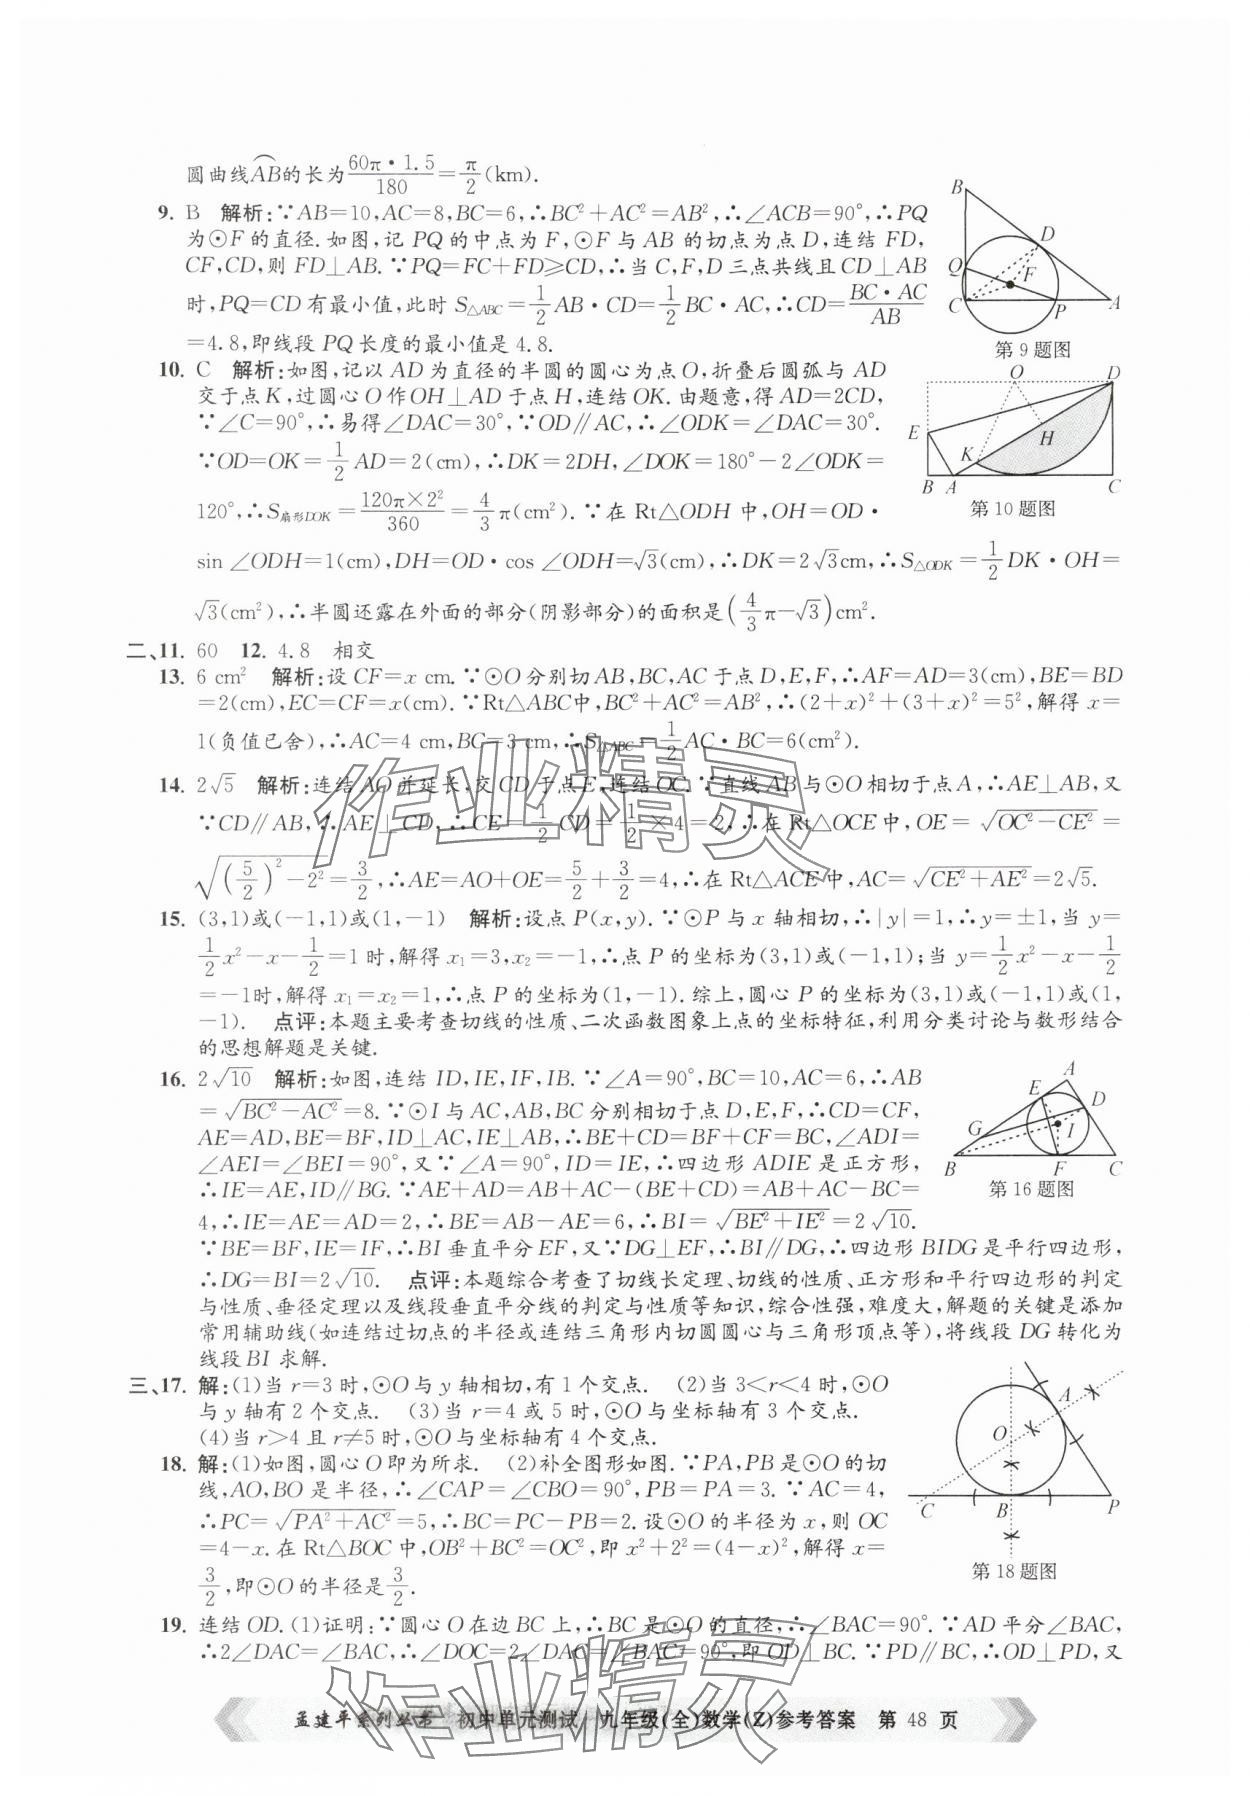 圆曲线AB的长为60π·1.5/180=π/2(km).
9. B 解析:∵AB=10,AC=8,BC=6,∴BC²+AC²=AB²,∴∠ACB=90°,∴PQ
为⊙F的直径.如图,记PQ的中点为F,⊙F与AB的切点为点D,连结FD,
CF,CD,则FD⊥AB.∵PQ=FC+FD≥CD,∴当C,F,D三点共线且CD⊥AB
时,PQ=CD有最小值,此时S△ABC=1/2AB·CD=1/2BC·AC,∴CD=BC·AC/AB
=4.8,即线段PQ长度的最小值是4.8.
B
D
Q
F
C
P
A
第9题图
10. C 解析:如图,记以AD为直径的半圆的圆心为点O,折叠后圆弧与AD
交于点K,过圆心O作OH⊥AD于点H,连结OK.由题意,得AD=2CD,
∵∠C=90°,∴易得∠DAC=30°.∵OD∥AC,∴∠ODK=∠DAC=30°.
∵OD=OK=1/2AD=2(cm),∴DK=2DH,∠DOK=180°-2∠ODK=
120°,∴S扇形DOK=120π×2²/360=4/3π(cm²).∵在Rt△ODH中,OH=OD·
sin∠ODH=1(cm),DH=OD·cos∠ODH=√3(cm),∴DK=2√3cm,∴S△ODK=1/2DK·OH=
√3(cm²),∴半圆还露在外面的部分(阴影部分)的面积是(4/3π-√3)cm².
O
D
E
K
H
B
A
C
第10题图
二、11. 60 12. 4.8 相交
13. 6 cm² 解析:设CF=x cm.∵⊙O分别切AB,BC,AC于点D,E,F,∴AF=AD=3(cm),BE=BD
=2(cm),EC=CF=x(cm).∵Rt△ABC中,BC²+AC²=AB²,∴(2+x)²+(3+x)²=5²,解得x=
1(负值已舍),∴AC=4 cm,BC=3 cm,∴S△ABC=1/2AC·BC=6(cm²).
14. 2√5 解析:连结AO并延长,交CD于点E,连结OC.∵直线AB与⊙O相切于点A,∴AE⊥AB,又
∵CD∥AB,∴AE⊥CD,∴CE=1/2CD=1/2×4=2,∴在Rt△OCE中,OE=√(OC²-CE²)=
√((5/2)²-2²)=3/2,∴AE=AO+OE=5/2+3/2=4,∴在Rt△ACE中,AC=√(CE²+AE²)=2√5.
15. (3,1)或(-1,1)或(1,-1) 解析:设点P(x,y).∵⊙P与x轴相切,∴|y|=1,∴y=±1,当y=
1/2x²-x-1/2=1时,解得x₁=3,x₂=-1,∴点P的坐标为(3,1)或(-1,1);当y=1/2x²-x-1/2
=-1时,解得x₁=x₂=1,∴点P的坐标为(1,-1).综上,圆心P的坐标为(3,1)或(-1,1)或(1,
-1). 点评:本题主要考查切线的性质、二次函数图象上点的坐标特征,利用分类讨论与数形结合
的思想解题是关键.
16. 2√10 解析:如图,连结ID,IE,IF,IB.∵∠A=90°,BC=10,AC=6,∴AB
=√(BC²-AC²)=8.∵⊙I与AC,AB,BC分别相切于点D,E,F,∴CD=CF,
AE=AD,BE=BF,ID⊥AC,IE⊥AB,∴BE+CD=BF+CF=BC,∠ADI=
∠AEI=∠BEI=90°,又∵∠A=90°,ID=IE,∴四边形ADIE是正方形,
∴IE=AE,ID∥BG.∵AE+AD=AB+AC-(BE+CD)=AB+AC-BC=
4,∴IE=AE=AD=2,∴BE=AB-AE=6,∴BI=√(BE²+IE²)=2√10.
∵BE=BF,IE=IF,∴BI垂直平分EF,又∵DG⊥EF,∴BI∥DG,∴四边形BIDG是平行四边形,
∴DG=BI=2√10. 点评:本题综合考查了切线长定理、切线的性质、正方形和平行四边形的判定
与性质、垂径定理以及线段垂直平分线的判定与性质等知识,综合性强,难度大,解题的关键是添加
常用辅助线(如连结过切点的半径或连结三角形内切圆圆心与三角形顶点等),将线段DG转化为
线段BI求解.
A
E
D
G
I
B
F
C
第16题图
三、17. 解:(1)当r=3时,⊙O与y轴相切,有1个交点. (2)当3<r<4时,⊙O
与y轴有2个交点. (3)当r=4或5时,⊙O与坐标轴有3个交点.
(4)当r>4且r≠5时,⊙O与坐标轴有4个交点.
18. 解:(1)如图,圆心O即为所求. (2)补全图形如图.∵PA,PB是⊙O的切
线,AO,BO是半径,∴∠CAP=∠CBO=90°,PB=PA=3.∵AC=4,
∴PC=√(PA²+AC²)=5,∴BC=PC-PB=2.设⊙O的半径为x,则OC
=4-x.在Rt△BOC中,OB²+BC²=OC²,即x²+2²=(4-x)²,解得x=
3/2,即⊙O的半径是3/2.
A
O
C
B
P
第18题图
19. 连结OD.(1)证明:∵圆心O在边BC上,∴BC是⊙O的直径,∴∠BAC=90°.∵AD平分∠BAC,
∴2∠DAC=∠BAC,∴∠DOC=2∠DAC=∠BAC=90°,即OD⊥BC.∵PD∥BC,∴OD⊥PD,又
孟建平系列丛书 初中单元测试 九年级(全)数学(Z)参考答案 第 48 页
作业精灵
作业精灵